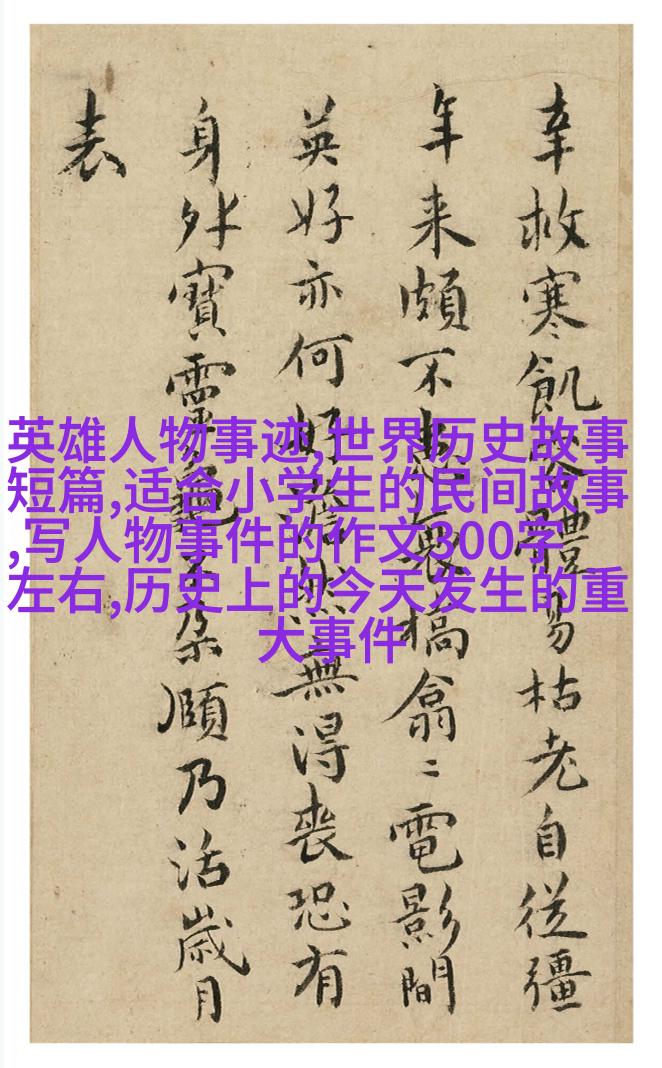 英雄人物事迹,世界历史故事
短篇,适合小学生的民间故事
,写人物事件的作文300字
左右,历史上的今天发生的重
大事件
幸救寒飢體易枯老自從彊
年来頗不槁翕〻電影間
英好亦何好澹然無得喪恐有
身外寳靈龜不朵頤乃活歲月
表